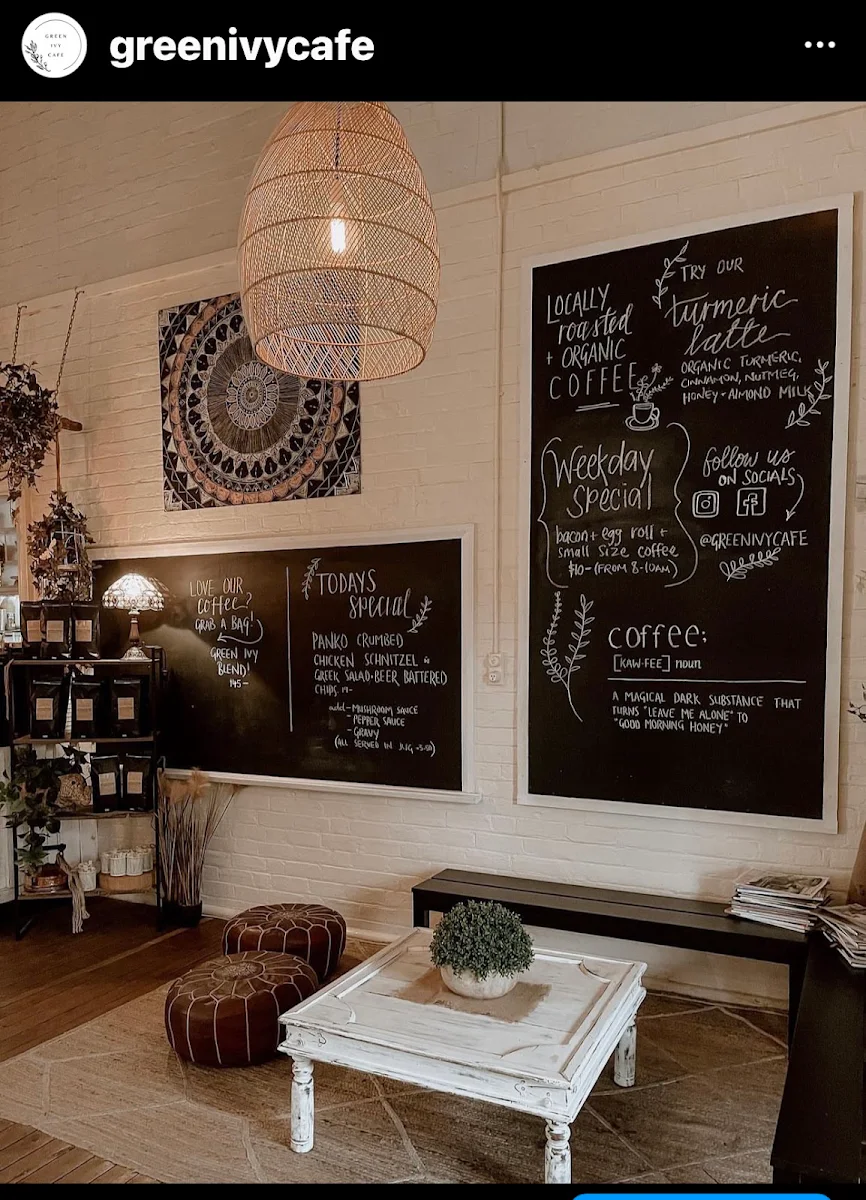 GREEN
IVY
CAFE
greenivycafe
LOVE OUR
coffee?
GRAB A BAG!
GREEN IVY
BLEND!
TODAYS
special
PANKO CRUMBED
CHICKEN SCHNITZEL
GREEK SALAD + BEER BATTERED
CHIPS 19-
add - MUSHROOM SAUCE
- PEPPER SAUCE
- GRAVY
(ALL SERVED IN JUG
LOCALLY
roasted
+ ORGANIC
COFFEE
TRY OUR
turmeric
latte
ORGANIC TURMERIC,
CINNAMON, NUTMEG,
HONEY + ALMOND MILK
Weekday
Special
bacon + egg roll +
small size coffee
$10- (FROM 8-10AM)
follow us
ON SOCIALS
@GREENIVYCAFE
coffee;
[KAW.FEE] noun
A MAGICAL DARK SUBSTANCE THAT
TURNS "LEAVE ME ALONE" TO
"GOOD MORNING HONEY"